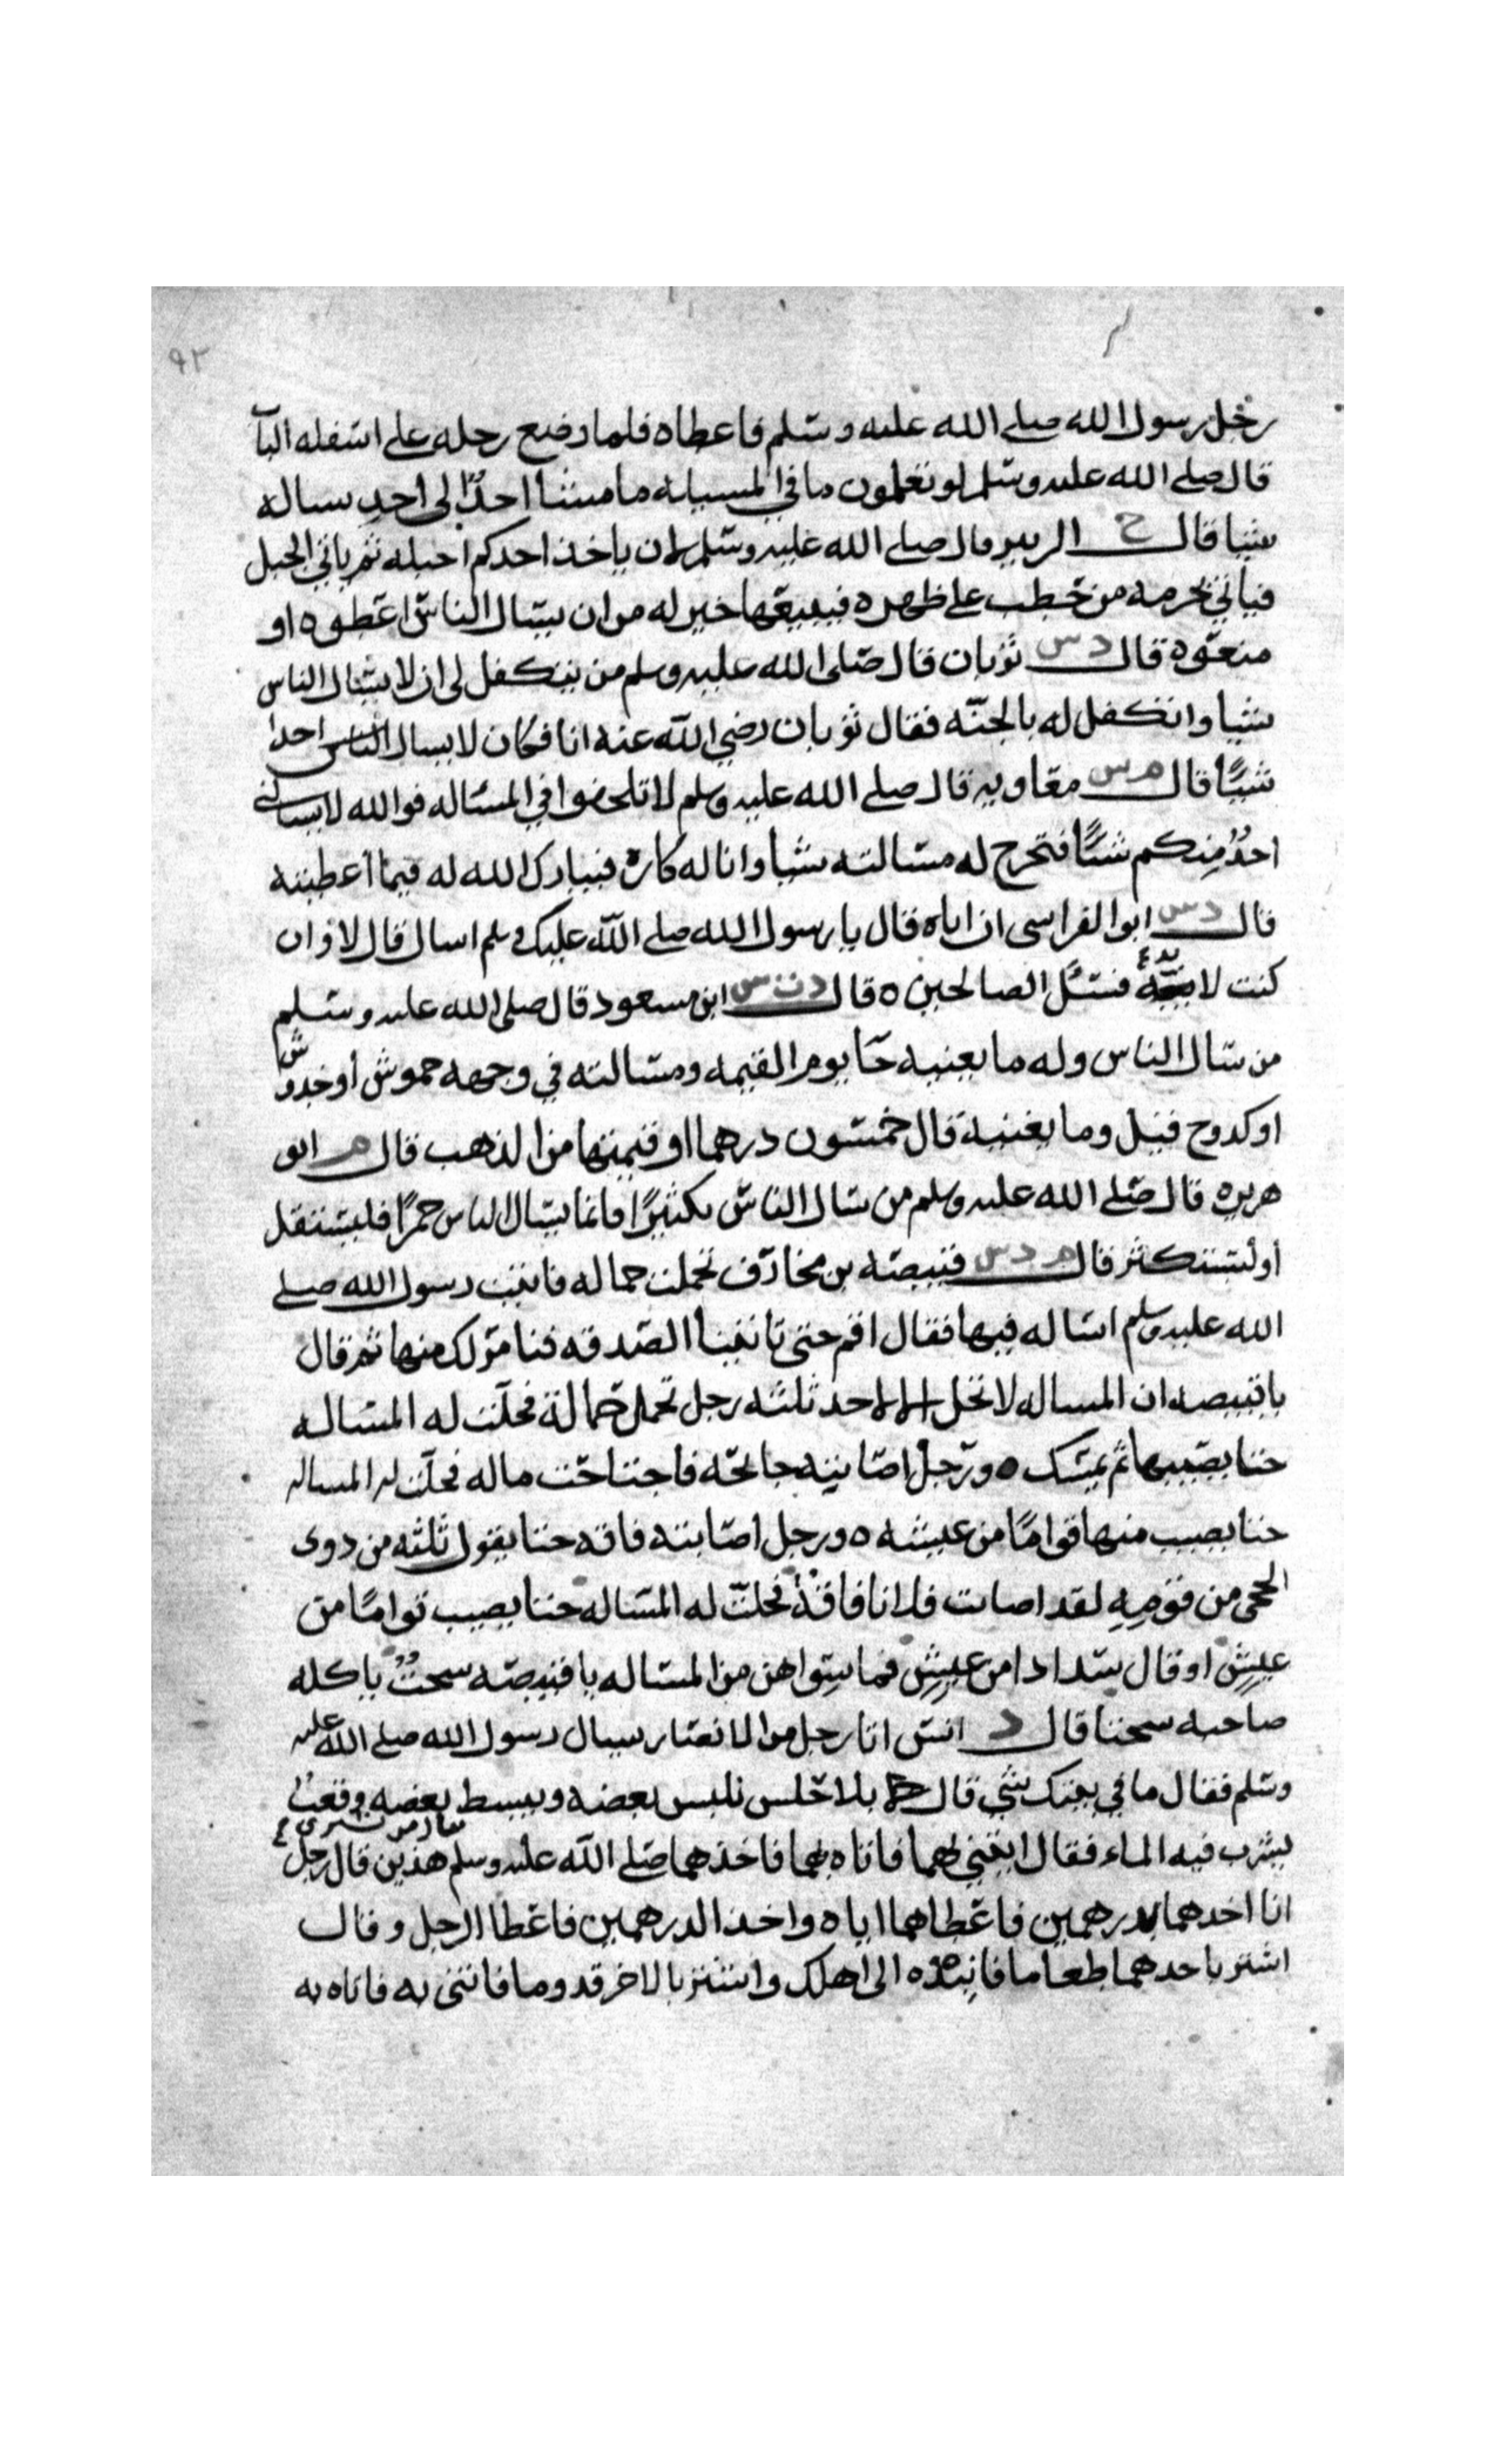 ٩٢
رجل رسول الله صلى الله عليه وسلم فاعطاه فلما وضع رجله على اسفله الباب
قال صلى الله عليه وسلم لو تعلمون ما في المسيله ما مشا احدٌ الى احدٍ يساله
شيا قال خ الزبير قال صلى الله عليه وسلم لان ياخذ احدكم احبله ثم ياتي الجبل
فياتي بحزمه من حطب على ظهره فيبيعها خير له من ان يسال الناس اعطوه او
منعوه قال د س ثوبان قال صلى الله عليه وسلم من يتكفل لي ان لا يسال الناس
شيا واتكفل له بالجنّه فقال ثوبان رضي الله عنه انا فكان لا يسال الناس احدا
شيًا قال م س معاويه قال صلى الله عليه وسلم لا تلحفوا في المساله فوالله لا يسالني
احدٌ مِنكم شيًا فتخرج له مسالته شيا وانا له كاره فيبارك الله له فيما أعطيته
قال د س ابو الفراسي ان اباه قال يا رسول الله صلى الله عليك وسلم اسال قال لا وان
كنت لا بد فسئل الصالحين ٥ قال د ت س ابن مسعود قال صلى الله عليه وسلم
من سال الناس وله ما يغنيه جا يوم القيمه ومسالته في وجهه خموش أو خدوش
او كدوح قيل وما يغنيه قال خمسون درهما او قيمتها من الذهب قال م ابو
هريره قال صلى الله عليه وسلم من سال الناس تكثيرًا فانما يسال الناس جمرًا فليستقل
أو ليستكثر قال م د س قبيصه بن مخارق تحملت حماله فاتيت رسول الله صلى
الله عليه وسلم اساله فيها فقال اقم حتى تاتينا الصدقه فنامر لك منها ثم قال
يا قبيصه ان المساله لا تحل الا لاحد ثلثه رجل تحمل حمالة فحلّت له المساله
حتا يصيبها ثم يمسك ٥ ورجل اصابته جايحه فاجتاحت ماله فحلّت له المساله
حتا يصيب منها قوامًا من عيشه ٥ ورجل اصابته فاقه حتا يقول ثلثه من ذوى
الحجى من قومِهِ لقد اصابت فلانا فاقةٌ فحلّت له المساله حتا يصيب قوامًا من
عيشٍ او قال سدادا من عيشٍ فما سواهن من المساله يا قبيصه سحتٌ ياكله
صاحبه سحتا قال د انس ان رجل من الانصار سال رسول الله صلى الله عليه
وسلم فقال ما في بيتك شي قال بلا حلس نلبس بعضه ونبسط بعضه وقعبٌ
نشرب فيه الماء فقال ايتني بهما فاتاه بهما فاخذهما صلى الله عليه وسلم هذين قال رجل
وقال من يشترى
انا اخذهما بدرهمين فاعطاهما اياه واخذ الدرهمين فاعطا الرجل وقال
اشتر باحدهما طعاما فانبذه الى اهلك واشتر بالاخر قدوما فاتني به فاتاه به